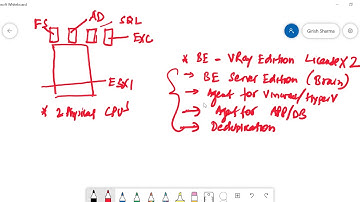 Microsoft Whiteboard
Girish Sharma
FS
AD
SQL
EXC
ESXI
* 2 Physical CPUs
* BE - VRay Edition License X 2
→ BE Server Edition (Brain)
→ Agent for Vmware/HyperV
→ Agent for APP/DB
→ Deduplication